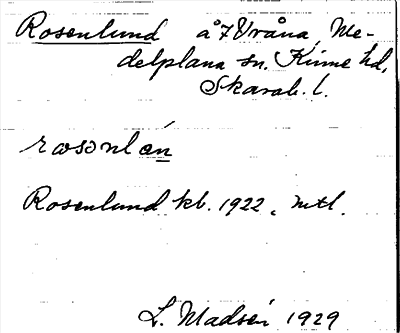 Rosenlund å 7 Vråna, Me-
delplana sn. Kinne hd,
Skarab. l.
ræsɔnlén
Rosenlund kb. 1922, mtl.
L. Madsén 1929